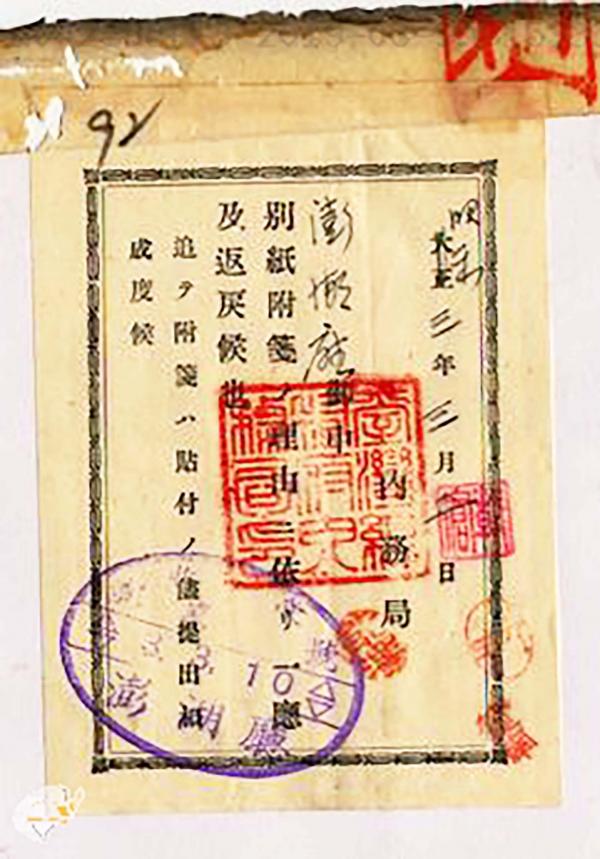 92
昭和
大正三年三月一日
內務局
澎湖廳御中
別紙附箋ノ理由ニ依リ一應
及返戻候也
追テ附箋ハ貼付ノ儘提出相
成度候
3. 3. 10
澎湖廳